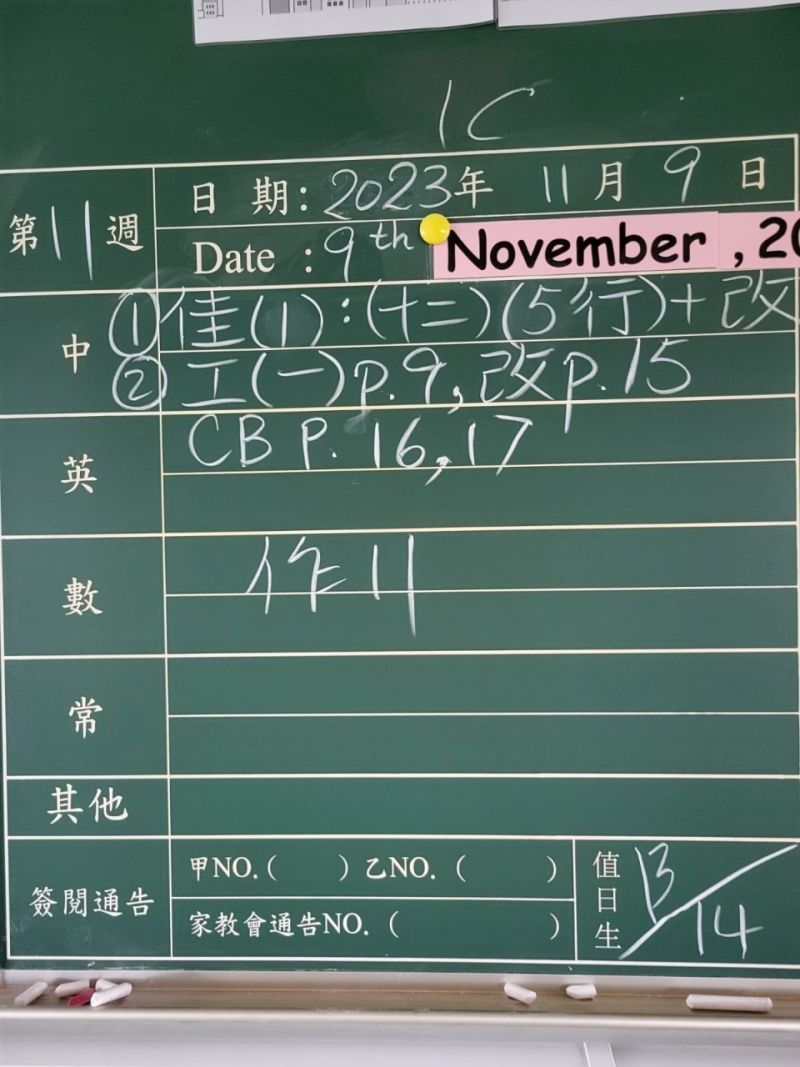 1C
第11週
日 期：2023年 11月 9日
Date ：9th November , 20
中
①佳(1)：(十二)(5行)+改
②工(一)p.9,改p.15
英
CB P. 16,17
數
作11
常
其他
簽閱通告
甲NO.( ) 乙NO. ( )
家教會通告NO. ( )
值日生
13/14